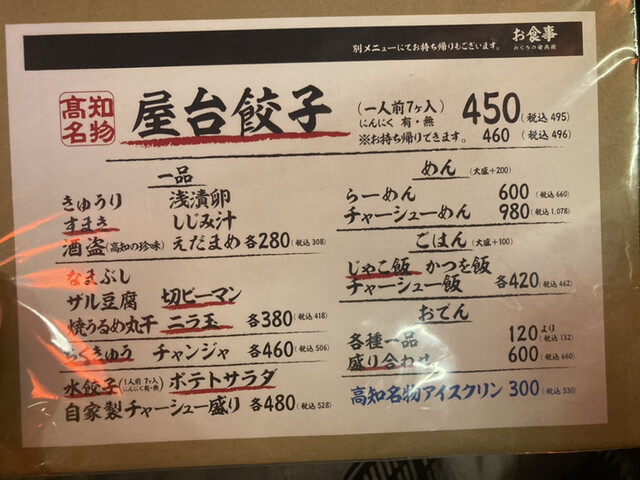 別メニューにてお持ち帰りもございます。
お食事
高知名物
屋台餃子
(一人前7ヶ入) 450(税込495)
にんにく 有・無
※お持ち帰りできます。 460 (税込496)
一品
きゅうり 浅漬卵
すまき しじみ汁
酒盗(高知の珍味) えだまめ 各280(税込308)
なまぶし
ザル豆腐 切ピーマン
焼うるめ丸干 ニラ玉 各380(税込418)
ちくきゅう チャンジャ 各460(税込506)
水餃子(1人前7ヶ入 にんにく有・無) ポテトサラダ
自家製チャーシュー盛り 各480(税込528)
めん (大盛+200)
らーめん 600(税込660)
チャーシューめん 980(税込1,078)
ごはん (大盛+100)
じゃこ飯 かつを飯
チャーシュー飯 各420(税込462)
おでん
各種一品 120より(税込132)
盛り合わせ 600(税込660)
高知名物アイスクリン 300(税込330)